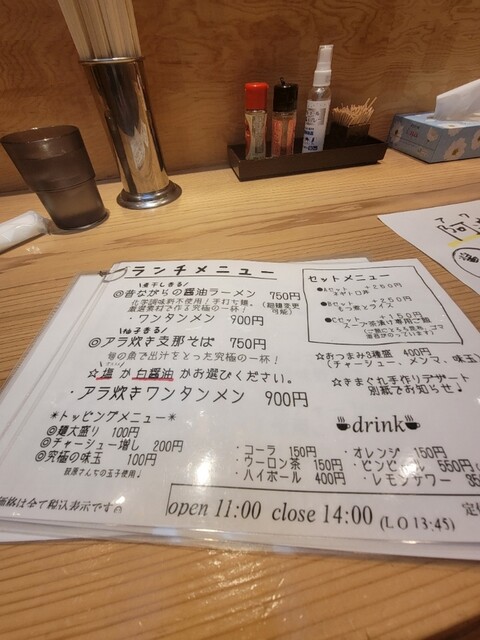 ランチメニュー
煮干しきる
◎昔ながらの醤油ラーメン 750円
化学調味料不使用!手打ち麺、
厳選素材で作る究極の一杯!
・ワンタンメン 900円
◎アラ炊き支那そば 750円
旬の魚で出汁をとった究極の一杯!
☆塩か白醤油かお選びください。
・アラ炊きワンタンメン 900円
*トッピングメニュー*
◎麺大盛り 100円
◎チャーシュー増し 200円
◎究極の味玉 100円
セットメニュー
●Aセット +250円
●Bセット +350円
もつ煮とライス
●Cセット +150円
☆おつまみ3種盛 400円
(チャーシュー、メンマ、味玉)
☆きまぐれ手作りデザート
別紙でお知らせ♩
drink
・コーラ 150円
・オレンジ 150円
・ウーロン茶 150円
・ビンビール 550円
・ハイボール 400円
・レモンサワー
価格は全て税込表示です。
open 11:00 close 14:00 (LO13:45)